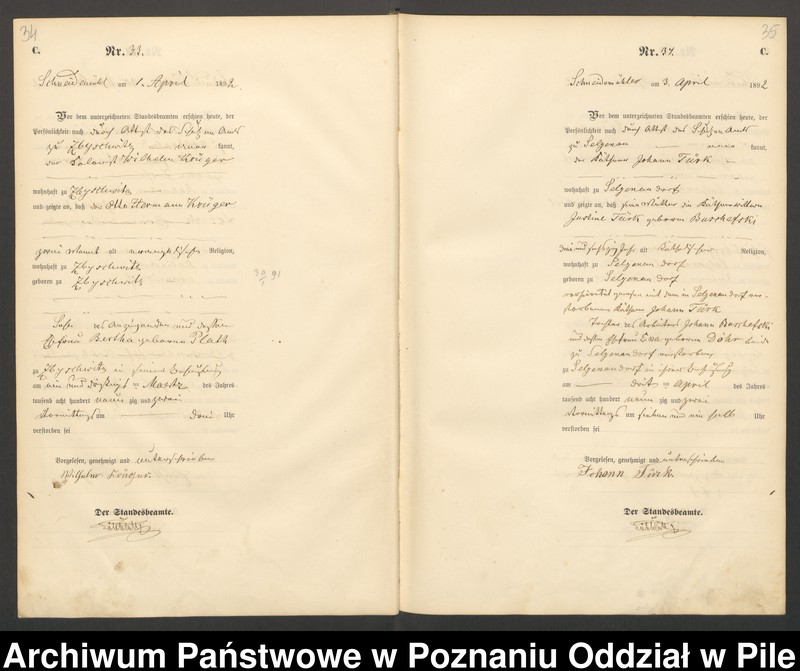 34
C.
Nr. 33.
Schneidemühl am 1. April 1892.
Vor dem unterzeichneten Standesbeamten erschien heute, der
Persönlichkeit nach durch Attest des Schulzen Amts
zu kannt,
der Wilhelm Krüger
wohnhaft zu
und zeigte an, daß der Otto Hermann Krüger
alt evangelischer Religion,
wohnhaft zu
geboren zu
30 91
Sohn des Anzeigenden und dessen
Ehefrau Bertha geborenen Plath
zu in seiner Behausung
am ein und dreißigsten Maerz des Jahres
tausend acht hundert neun zig und zwei
Vormittags um drei Uhr
verstorben sei
Vorgelesen, genehmigt und unterschrieben
Wilhelm Krüger.
Der Standesbeamte.
35
Nr. 34.
C.
Schneidemühl am 3. April 1892
Vor dem unterzeichneten Standesbeamten erschien heute, der
Persönlichkeit nach durch Attest des Schulzen Amts
zu Selgenau kannt,
der Käthner Johann Türk
wohnhaft zu Selgenau dorf
und zeigte an, daß seine Mutter die
Justine Türk geborene Buschefski
drei und sechszig Jahr alt katholischer Religion,
wohnhaft zu Selgenau dorf
geboren zu Selgenau dorf
verheirathet gewesen mit dem in Selgenau dorf ver-
storbenen Käthner Johann Türk
Tochter des Arbeiters Johann Buschefski
und dessen Ehefrau Eva geborenen Döhr beide
zu Selgenau dorf verstorben
zu Selgenau dorf in ihrer Behausung
am dritten April des Jahres
tausend acht hundert neun zig und zwei
Vormittags um sieben und ein halb Uhr
verstorben sei
Vorgelesen, genehmigt und unterschrieben
Johann Türk.
Der Standesbeamte.
Archiwum Państwowe w Poznaniu Oddział w Pile